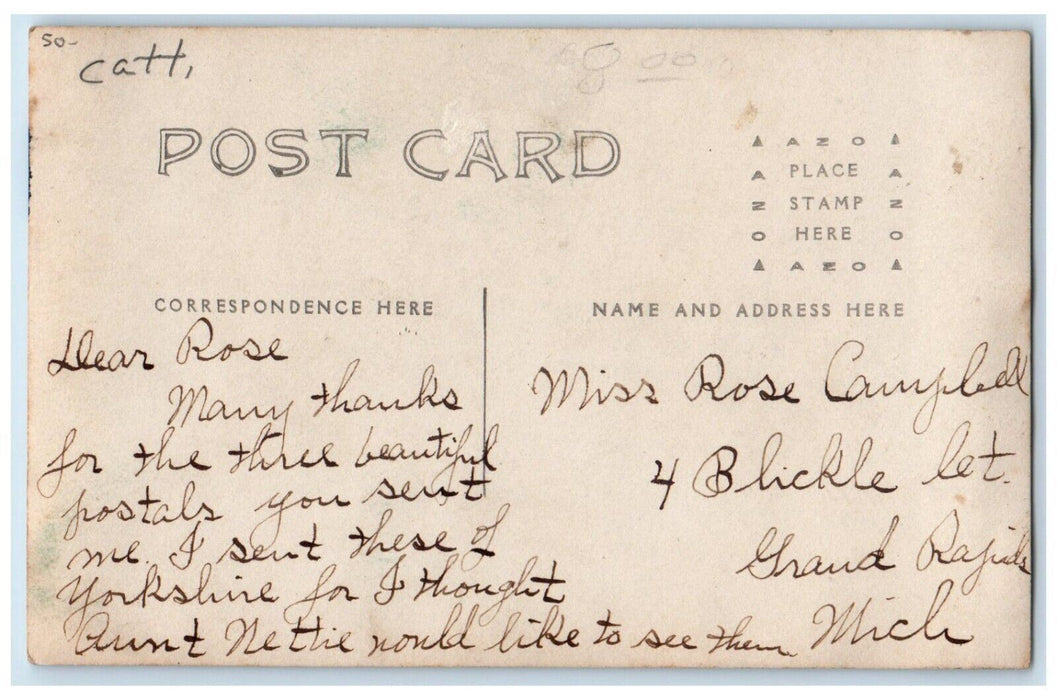 50-
Catt,
8.00
POST CARD
AZO
PLACE
STAMP
HERE
AZO
CORRESPONDENCE HERE
NAME AND ADDRESS HERE
Dear Rose
Many thanks
for the three beautiful
postals you sent
me. I sent these of
Yorkshire for I thought
Aunt Nettie would like to see them.
Miss Rose Campbell
4 Blickle Ct.
Grand Rapids
Mich